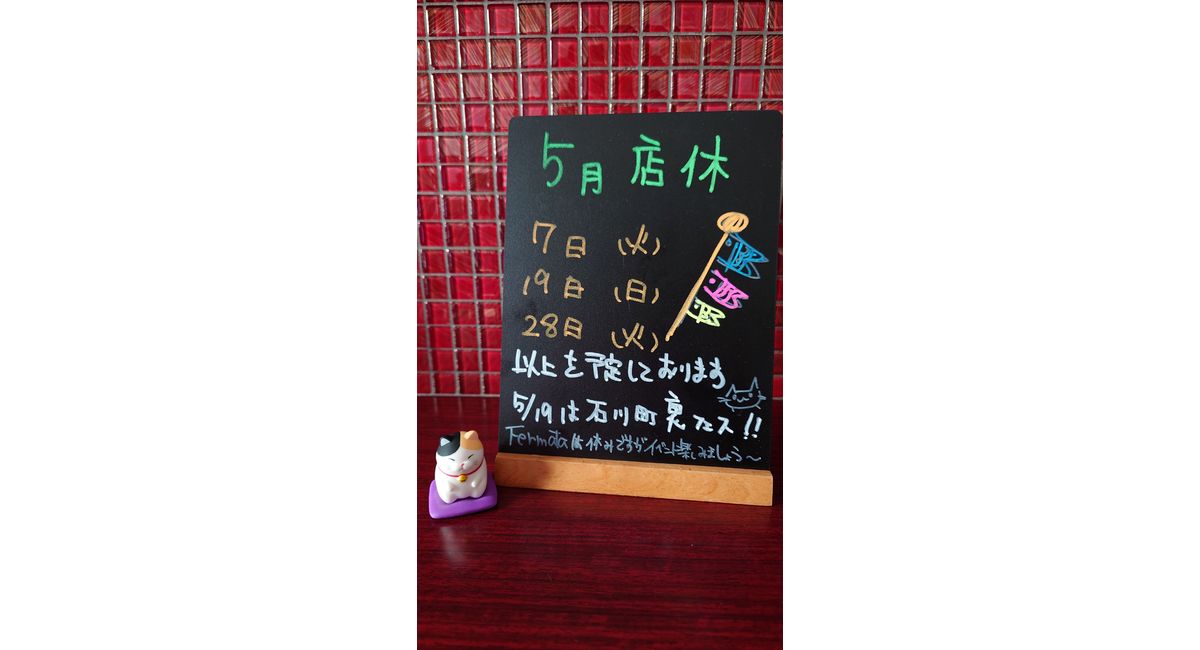 5月 店休
7日 (火)
19日 (日)
28日 (火)
以上を予定しております
5/19は石川町裏フェス!!
Fermataは休みですがイベント楽しみましょう〜